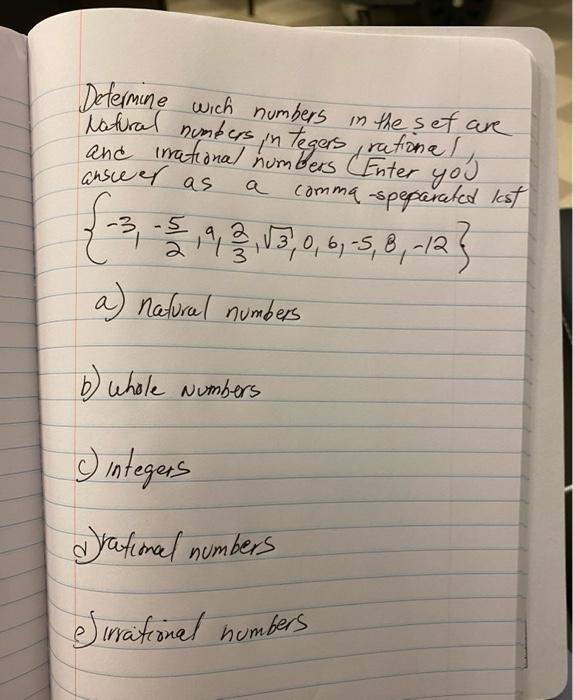 Determine wich numbers in the set are
Natural numbers, in tegers, rational,
and irrational numbers (Enter you
answer as a comma-speparated list
{-3, -5/2, 9, 2/3, √3, 0, 6, -5, 8, -12}
a) natural numbers
b) whole numbers
c) integers
d) rational numbers
e) irrational numbers